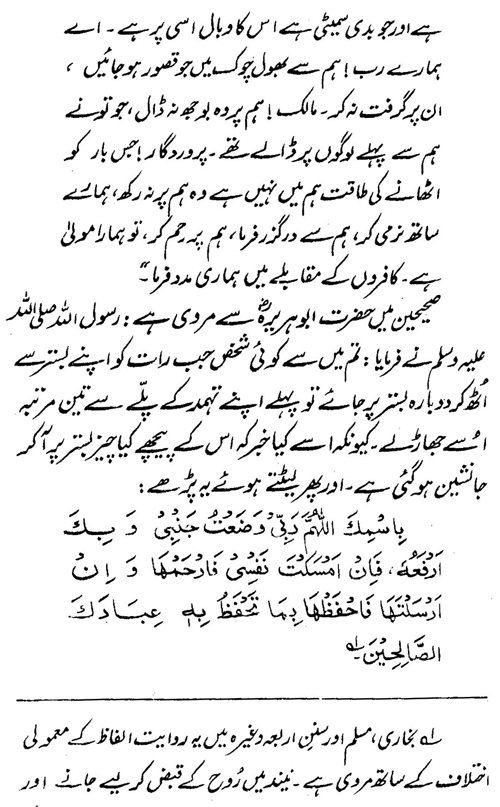 ہے اور جو بدی سمیٹی ہے اس کا وبال اسی پر ہے۔ اے
ہمارے رب! ہم سے بھول چوک میں جو قصور ہو جائیں،
ان پر گرفت نہ کر۔ مالک! ہم پر وہ بوجھ نہ ڈال، جو تونے
ہم سے پہلے لوگوں پر ڈالے تھے۔ پروردگار! جس بار کو
اٹھانے کی طاقت ہم میں نہیں ہے وہ ہم پر نہ رکھ، ہمارے
ساتھ نرمی کر، ہم سے درگزر فرما، ہم پر رحم کر، تو ہمارا مولیٰ
ہے۔ کافروں کے مقابلے میں ہماری مدد فرما۔“
صحیحین میں حضرت ابوہریرہؓ سے مروی ہے: رسول اللہ صلی اللہ
علیہ وسلم نے فرمایا: تم میں سے کوئی شخص جب رات کو اپنے بستر سے
اُٹھ کر دوبارہ بستر پر جائے تو پہلے اپنے تہمد کے پلّے سے تین مرتبہ
اُسے جھاڑ لے۔ کیونکہ اسے کیا خبر کہ اس کے پیچھے کیا چیز بستر پر آ کر
جانشین ہو گئی ہے۔ اور پھر لیٹتے ہوئے یہ پڑھے:
بِاسْمِكَ اللّٰهُمَّ رَبِّیْ وَضَعْتُ جَنْبِیْ وَ بِكَ
اَرْفَعُهٗ، فَاِنْ اَمْسَكْتَ نَفْسِیْ فَارْحَمْهَا وَ اِنْ
اَرْسَلْتَهَا فَاحْفَظْهَا بِمَا تَحْفَظُ بِهٖ عِبَادَكَ
الصَّالِحِیْنَ۔ ؎۱
؎۱ بخاری، مسلم اور سنن اربعہ وغیرہ میں یہ روایت الفاظ کے معمولی
اختلاف کے ساتھ مروی ہے۔ نیند میں رُوح کے قبض کر لیے جانے اور